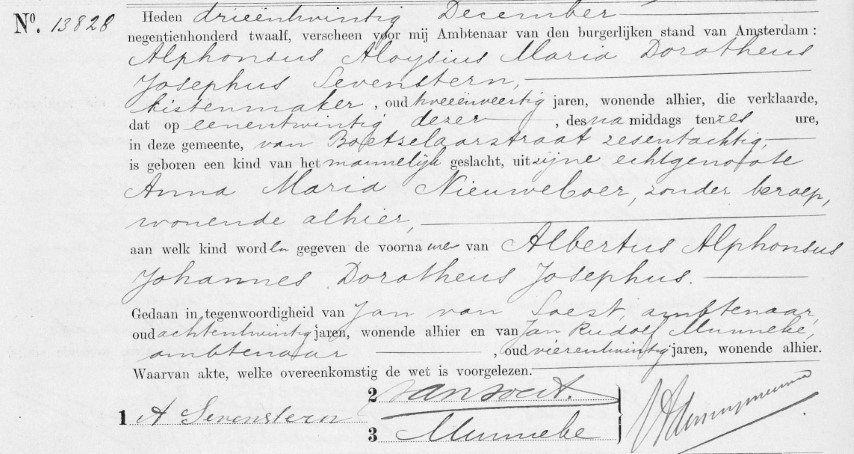 Nº. 13828 Heden drieëntwintig December
negentienhonderd twaalf, verscheen voor mij Ambtenaar van den burgerlijken stand van Amsterdam:
Alphonsus Aloysius Maria Dorotheus
Josephus Sevenstern,
kistenmaker, oud tweeënveertig jaren, wonende alhier, die verklaarde,
dat op eenentwintig dezer, des na middags ten zes ure,
in deze gemeente, van Boetzelaarstraat zesentachtig,
is geboren een kind van het mannelijk geslacht, uit zijne echtgenoote
Anna Maria Nieuweboer, zonder beroep,
wonende alhier,
aan welk kind worden gegeven de voorna men van Albertus Alphonsus
Johannes Dorotheus Josephus.
Gedaan in tegenwoordigheid van Jan van Soest, ambtenaar,
oud achtentwintig jaren, wonende alhier en van Jan Rudolf Munneke,
ambtenaar, oud vierentwintig jaren, wonende alhier.
Waarvan akte, welke overeenkomstig de wet is voorgelezen.
2 van Soest.
1 A Sevenstern
3 Munneke